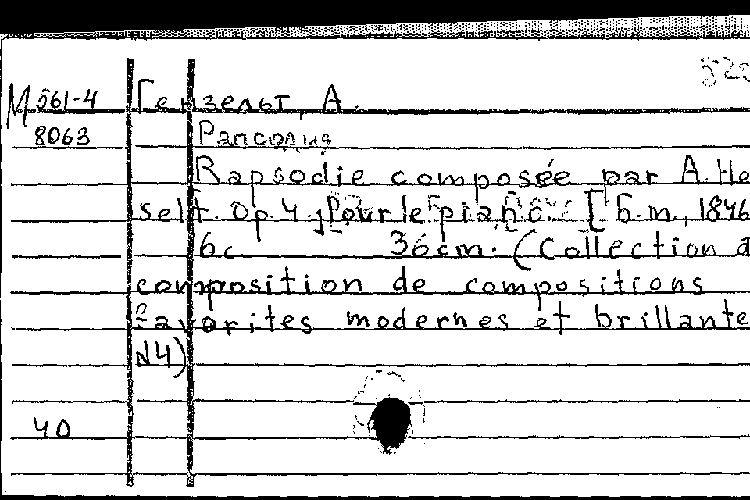 М 561-4 Гензельт, А.
8063 Рапсодия
Rapsodie composée par A. He
selt. Op. 4, Pour le piano. [Б.м., 1846
6 с 36 cm. (Collection d
composition de compositions
favorites modernes et brillante
N4)
40